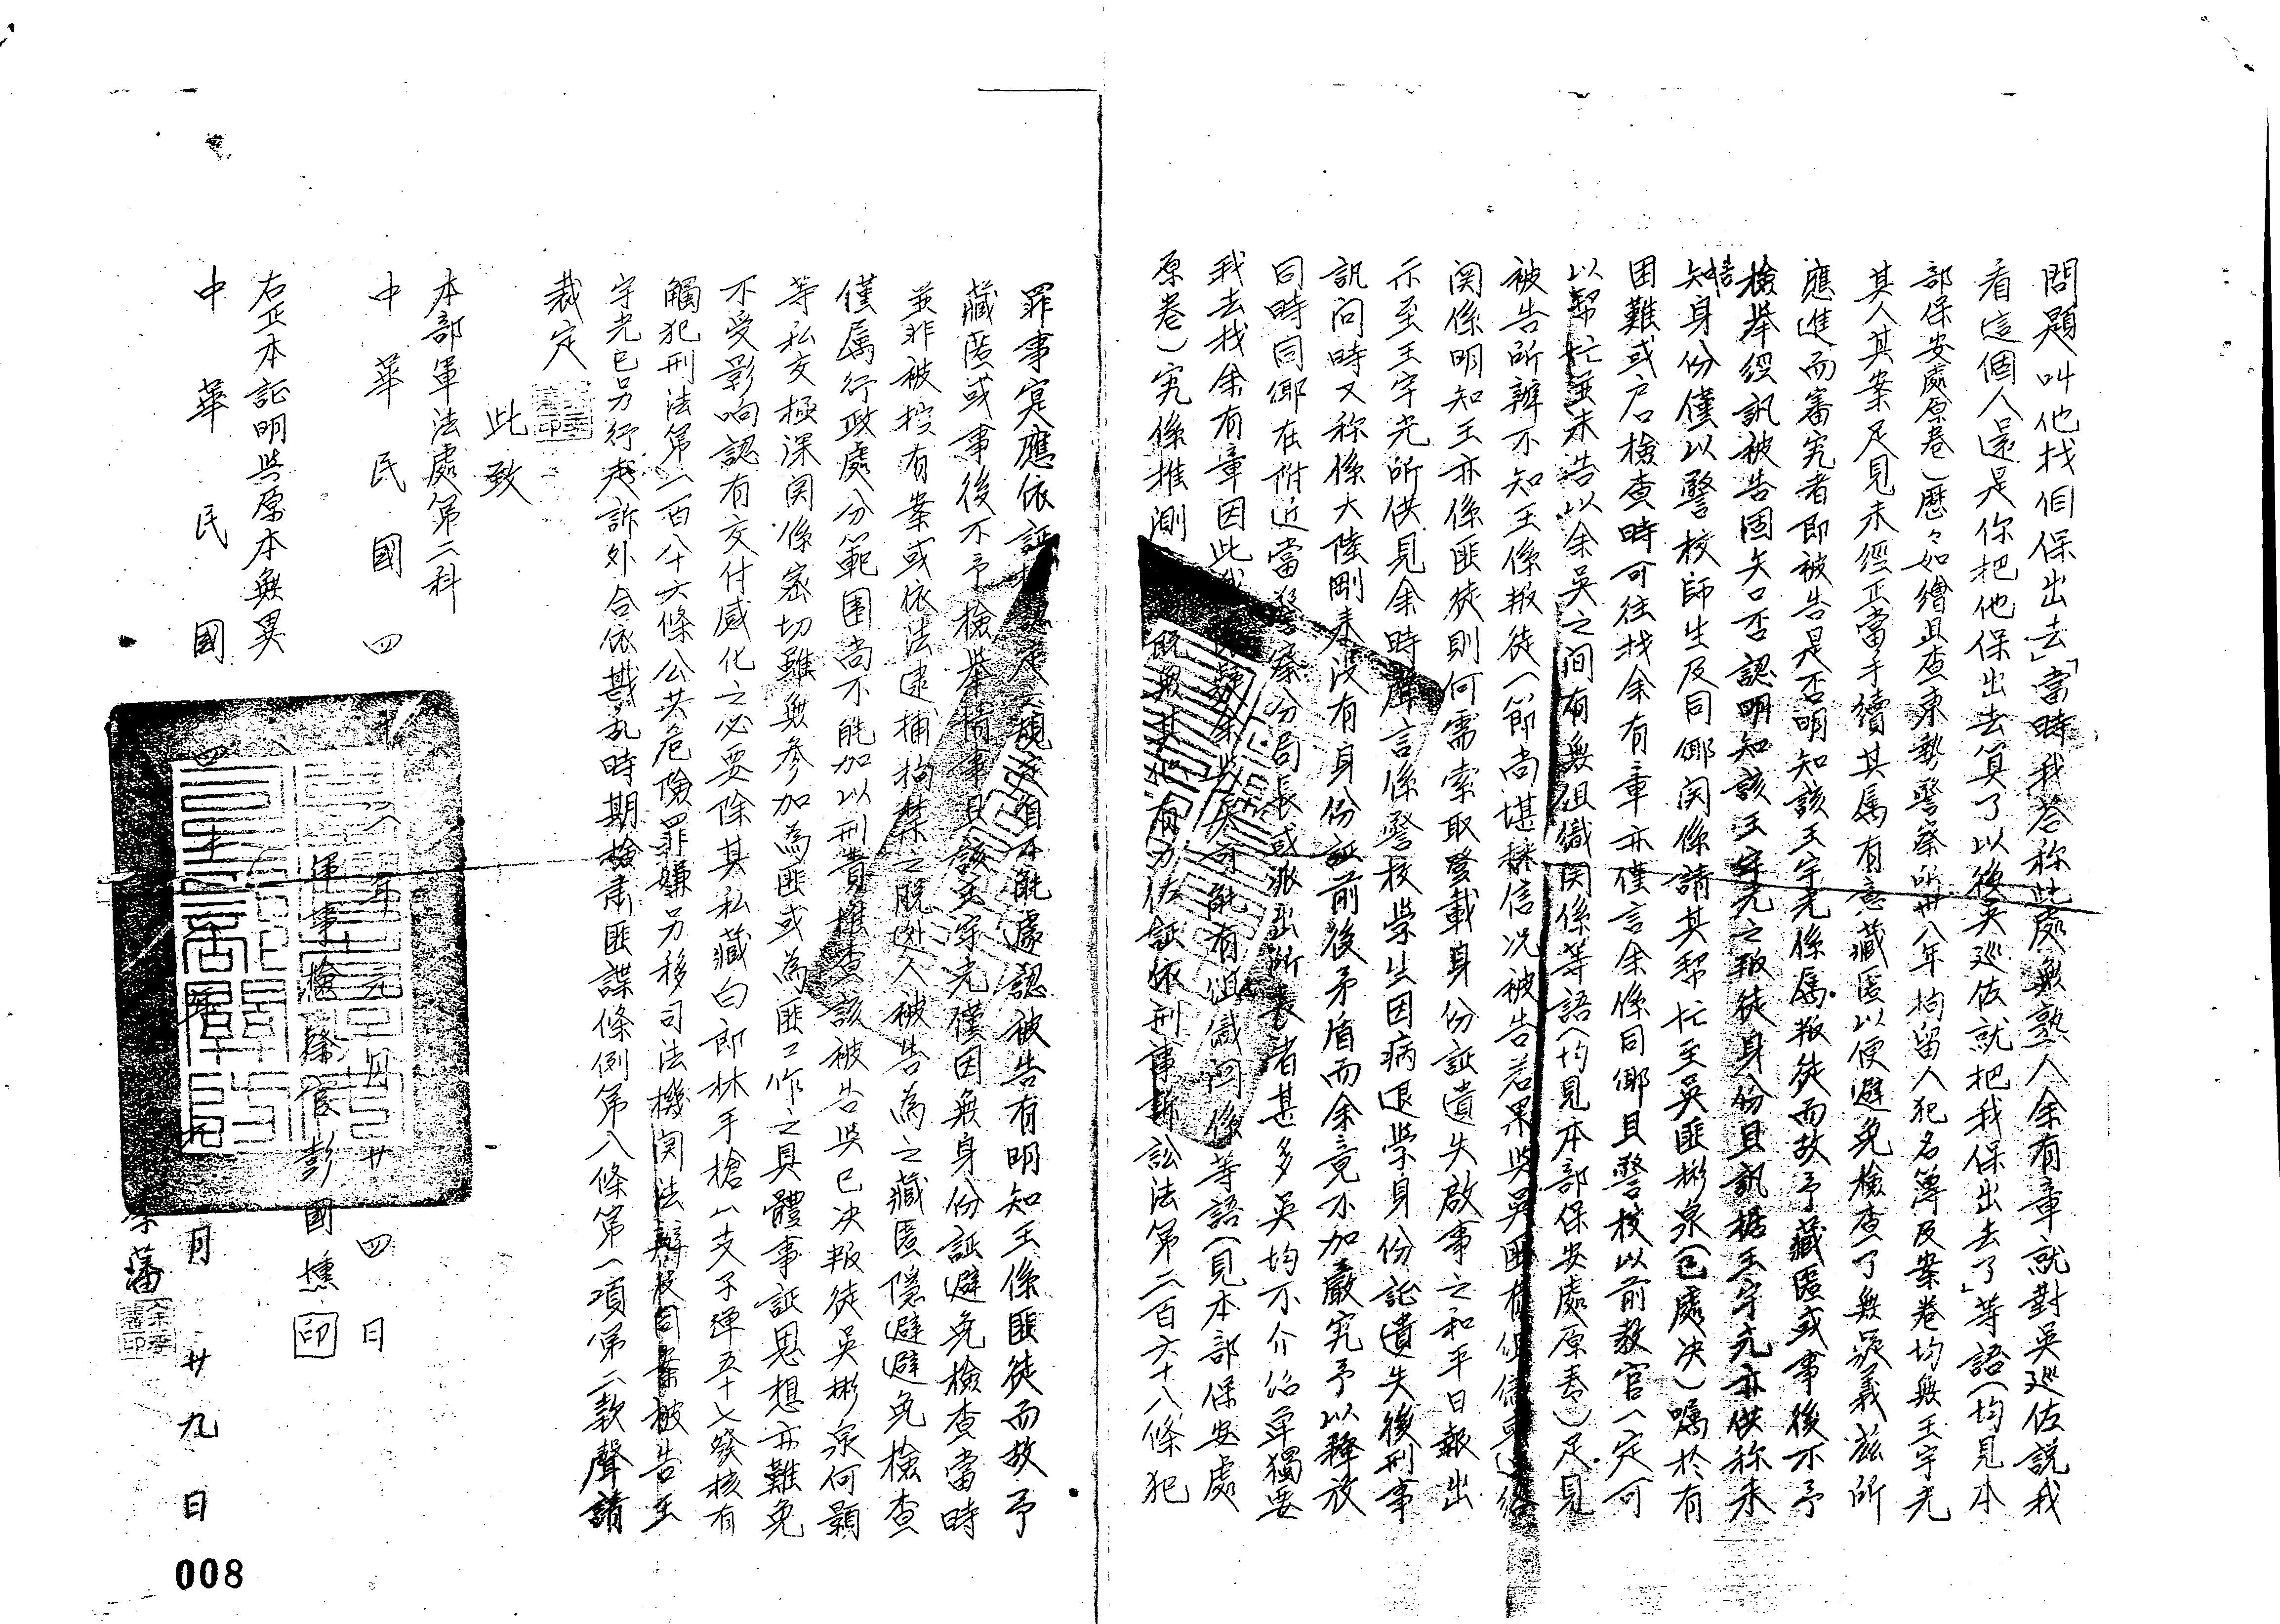 問題叫他找但保出去」「當時我答称此處無熟人余有章就對吳巡佐説我
看這個人還是你把他保出去算了以後吳巡佐就把我保出去了」等語(均見本
部保安處原卷)歷々如繪且查東勢警察所卅八年拘留人犯名簿及案卷均無王宇光
其人其案足見未經正當手續其属有意藏匿以便避免檢查了無疑義茲所
應進而審究者即被告是否明知該王宇光係属叛徒而故予藏匿或事後不予
檢舉經訊被告固矢口否認明知該王宇光之叛徒身份且訊據王宇光亦供称未
告知身份僅以警校師生及同鄉関係請其幫忙至吳匪彬泉(已處决)嘱於有
困難或户口檢查時可往找余有章亦僅言余係同鄉且警校以前教官一定可
以幫忙並未告以余吳之间有無組織関係等語(均見本部保安處原卷)足見
被告所辨不知王係叛徒一節尚堪採信况被告若果與吳匪有組織
関係明知王亦係匪徒則何需索取登載身份証遺失啟事之和平日報出
示至王宇光所供見余時聲言係警校學生因病退學身份記遺失後刑事
訊问時又称係大陸剛来没有身份証前後矛盾而余竟不加嚴究予以釋放
同時同鄉在附近當警察分局長或派出所長者甚多吳均不介绍单獨要
我去找余有章因此我 余 吳可能有組織関係等語(見本部保安處
原卷)究係推測 既無其他有力佐証依刑事訴訟法第二百六十八條犯
罪事实應依証據認定之規定自不能遽認被告有明知王係匪徒而故予
藏匿或事後不予檢舉情事且該王宇光僅因無身份証避免檢查當時
並非被控有案或依法逮捕拘禁之脫逃人被告為之藏匿隱避避免檢查
僅属行政處分範围尚不能加以刑責惟查該被告與已决叛徒吳彬泉何顯
等私交極深関係密切雖無參加為匪或為匪工作之具體事証思想亦難免
不受影响認有交付感化之必要除其私藏白郎林手槍一支子弹五十七發核有
觸犯刑法第一百八十六條公共危險罪嫌另移司法機関法辦及同案被告王
宇光已另行起訴外合依戡乱時期檢肅匪諜條例第八條第一項第二款聲請
裁定
此致
本部軍法處第二科
中華民國四十一年元月廿四日
軍事檢察官彭國壎 印
右正本証明與原本無異
中華民國四十一年元月廿九日
藩
008